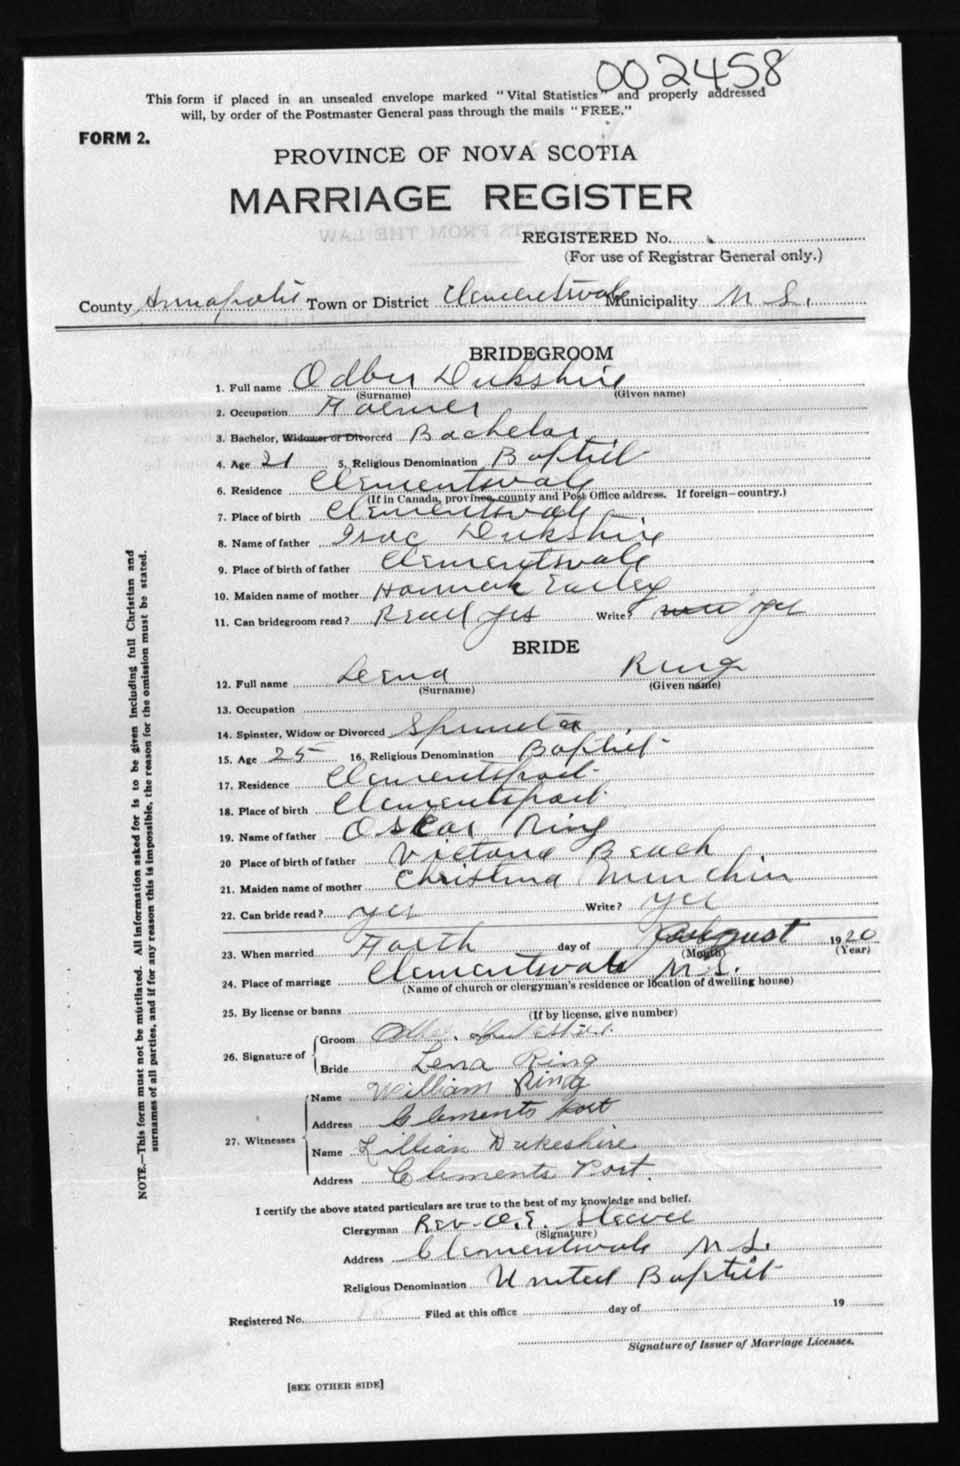 002458
This form if placed in an unsealed envelope marked "Vital Statistics" and properly addressed
will, by order of the Postmaster General pass through the mails "FREE."
FORM 2.
PROVINCE OF NOVA SCOTIA
MARRIAGE REGISTER
REGISTERED No.
(For use of Registrar General only.)
County Annapolis Town or District Clementsvale Municipality N S.
BRIDEGROOM
1. Full name Odber Dukshire
(Surname) (Given name)
2. Occupation Farmer
3. Bachelor, Widower or Divorced Bachelor
4. Age 21 5. Religious Denomination Baptist
6. Residence Clementsvale
(If in Canada, province, county and Post Office address. If foreign—country.)
7. Place of birth Clementsvale
8. Name of father Isac Dukshire
9. Place of birth of father Clementsvale
10. Maiden name of mother Hannah
11. Can bridegroom read? Read yes Write? yes
BRIDE
12. Full name Lena Ring
(Surname) (Given name)
13. Occupation
14. Spinster, Widow or Divorced Spinster
15. Age 25 16. Religious Denomination Baptist
17. Residence Clementsport
18. Place of birth Clementsport
19. Name of father Oscar Ring
20 Place of birth of father Victoria Beach
21. Maiden name of mother Christina
22. Can bride read? yes Write? yes
23. When married Forth day of August 1920
(Month) (Year)
24. Place of marriage Clementsvale N.S.
(Name of church or clergyman's residence or location of dwelling house)
25. By license or banns
(If by license, give number)
26. Signature of Groom
Bride Lena Ring
27. Witnesses Name William Ring
Address Clements Port
Name Lillian Dukeshire
Address Clements Port.
I certify the above stated particulars are true to the best of my knowledge and belief.
Clergyman Rev. O. E. Steeves
(Signature)
Address Clementsvale N S.
Religious Denomination United Baptist
Registered No. Filed at this office day of 19
Signature of Issuer of Marriage Licenses.
[SEE OTHER SIDE]
NOTE.—This form must not be mutilated. All information asked for is to be given including full Christian and
surnames of all parties, and if for any reason this is impossible, the reason for the omission must be stated.